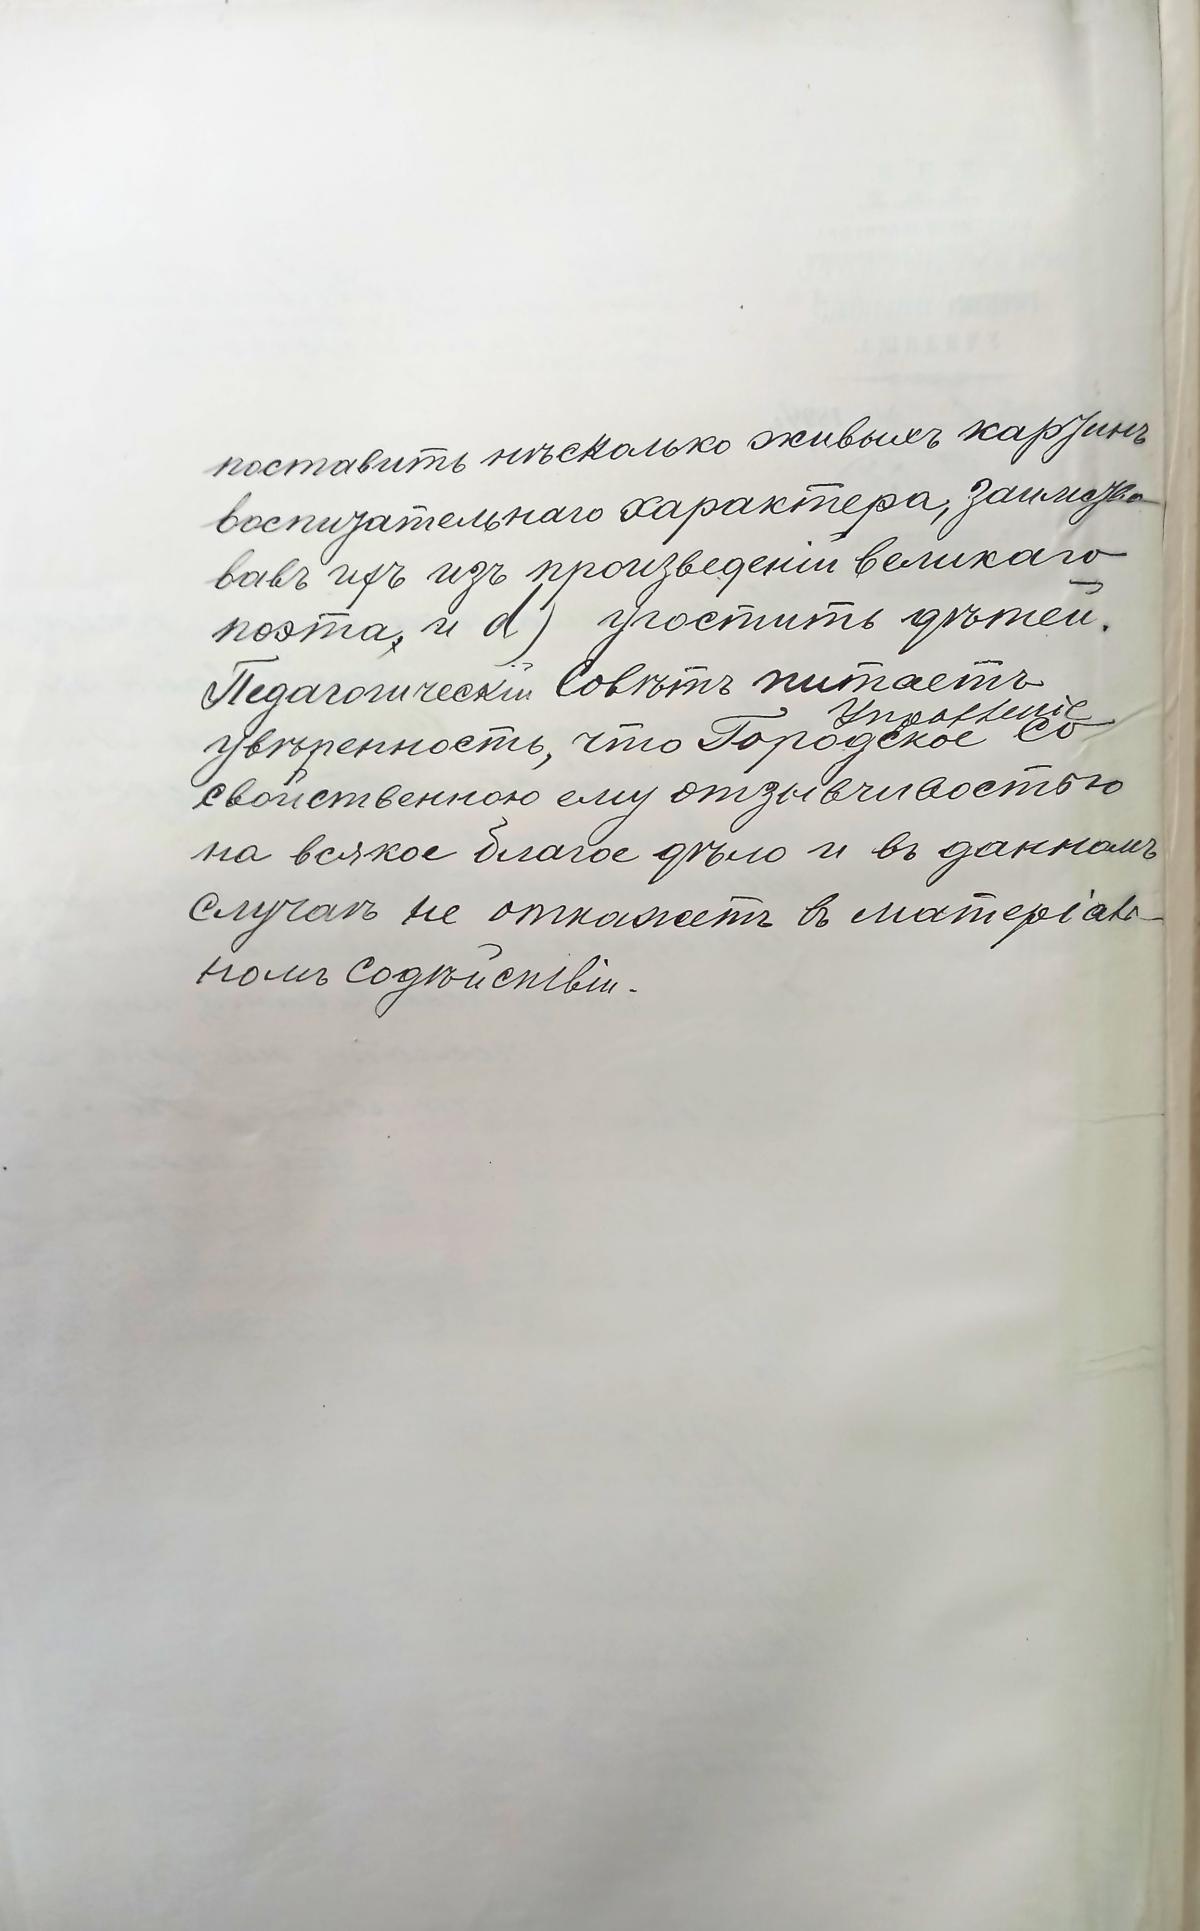 поставить нѣсколько живыхъ картинъ
воспитательнаго характера, заимство-
вавъ ихъ изъ произведеній великаго
поэта, и d) угостить дѣтей.
Педагогическій Совѣтъ питаетъ
Управленіе
увѣренность, что Городское со
свойственною ему отзывчивостью
на всякое благое дѣло и въ данномъ
случаѣ не откажетъ въ матеріаль-
номъ содѣйствіи.